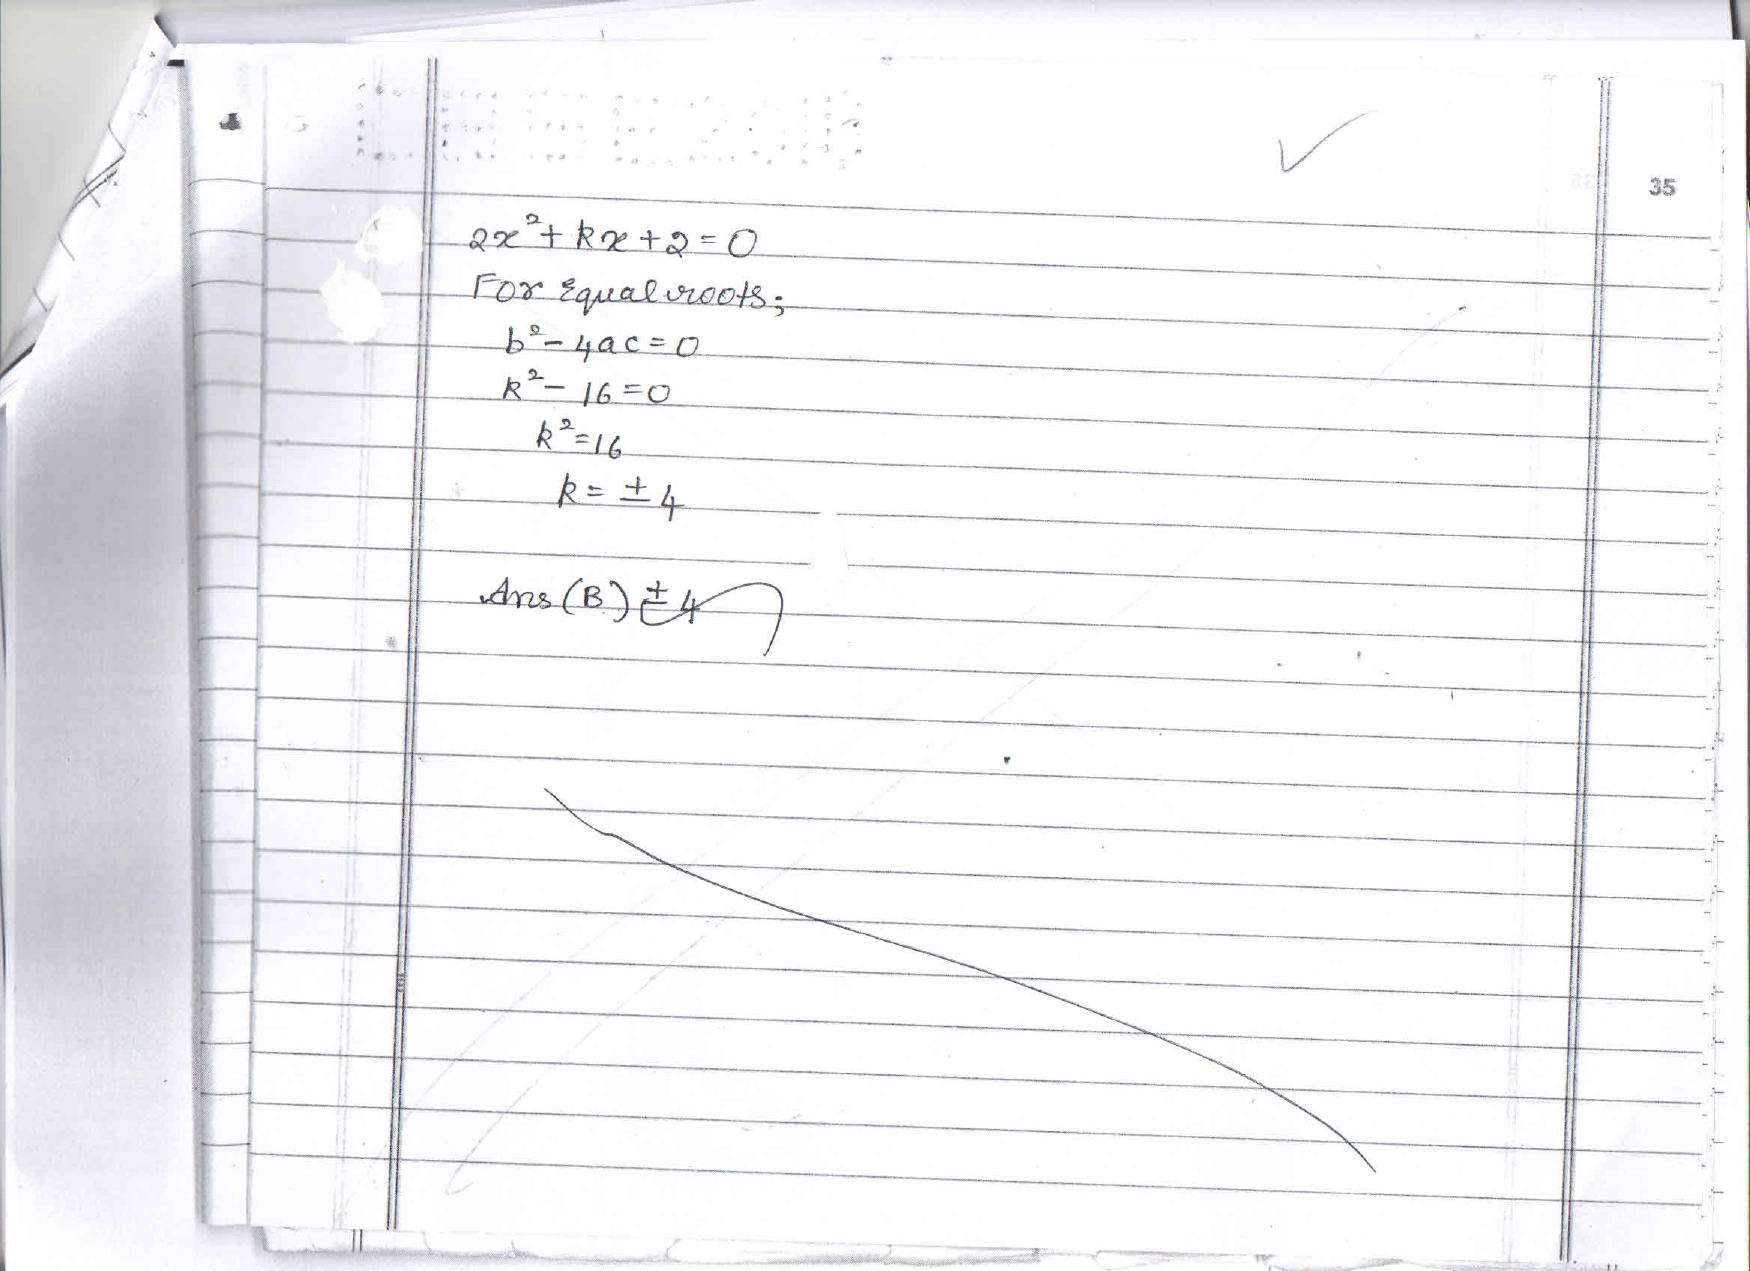 35
2x²+kx+2=0
For Equal roots;
b²-4ac=0
k²-16=0
k²=16
k=±4
Ans(B)±4